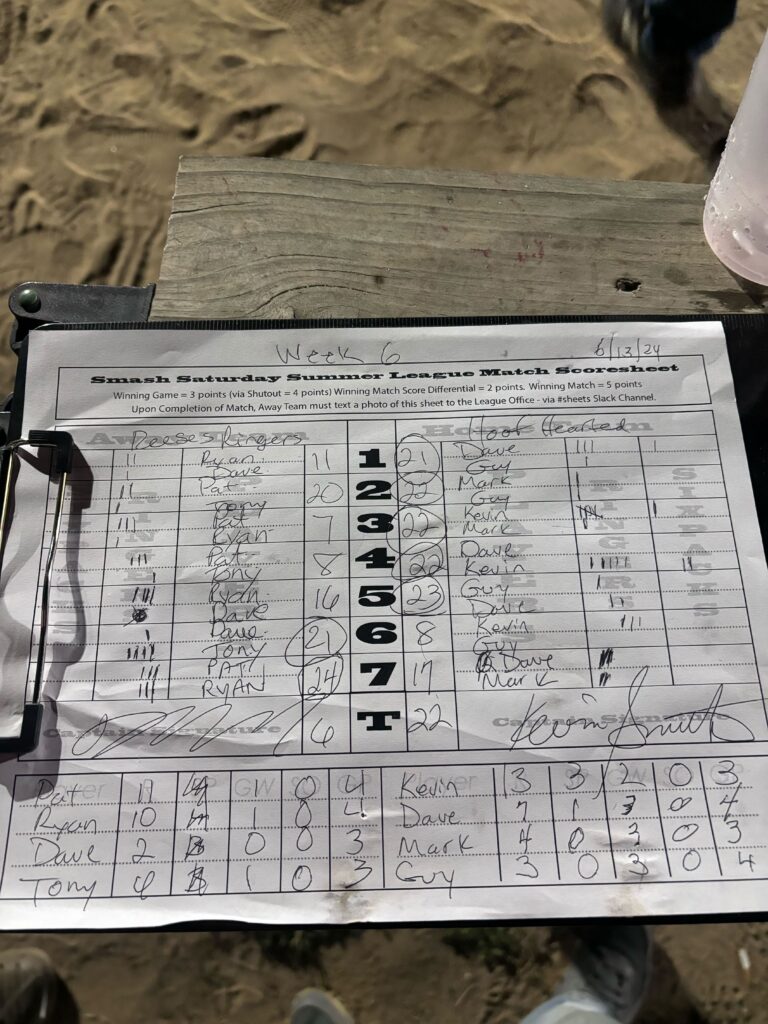 Week 6 6/13/24
Smash Saturday Summer League Match Scoresheet
Winning Game = 3 points (via Shutout = 4 points) Winning Match Score Differential = 2 points. Winning Match = 5 points
Upon Completion of Match, Away Team must text a photo of this sheet to the League Office - via #sheets Slack Channel.
Reese's Ringers Hoof Hearted
Ryan 11 1 21 Dave
Dave Guy
Pat 20 2 22 Mark
Tony Guy
Pat 7 3 22 Kevin
Ryan Mark
Pat 8 4 22 Dave
Tony Kevin
Ryan 16 5 23 Guy
Dave Dave
Dave 21 6 8 Kevin
Tony Guy
PAT 24 7 17 Dave
RYAN Mark
Captain Signature 6 T 22 Captain Signature
Kevin Smith
Pat 1 0 4 Kevin 3 3 2 0 3
Ryan 10 1 0 4 Dave 7 1 3 0 4
Dave 2 0 0 3 Mark 4 0 3 0 3
Tony 1 0 3 Guy 3 0 3 0 4